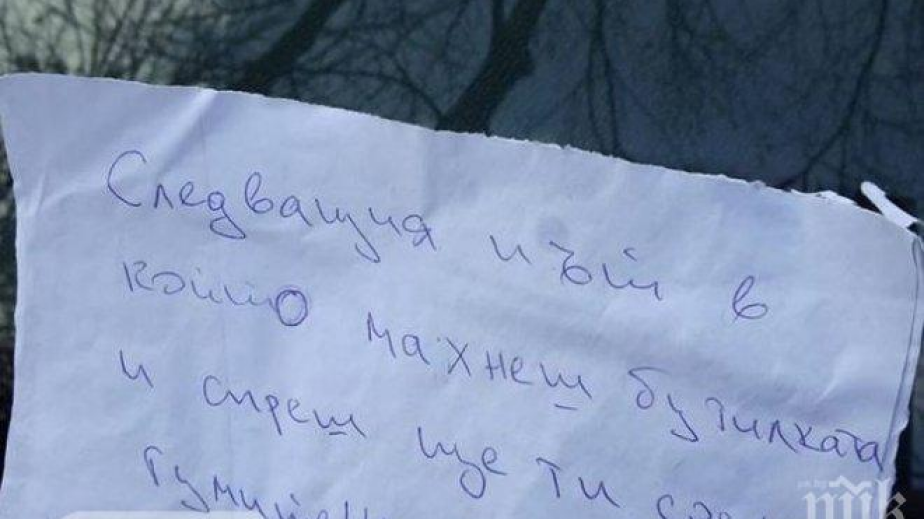 Следващия път в
който махнеш бутилката
и спреш ще ти
пик